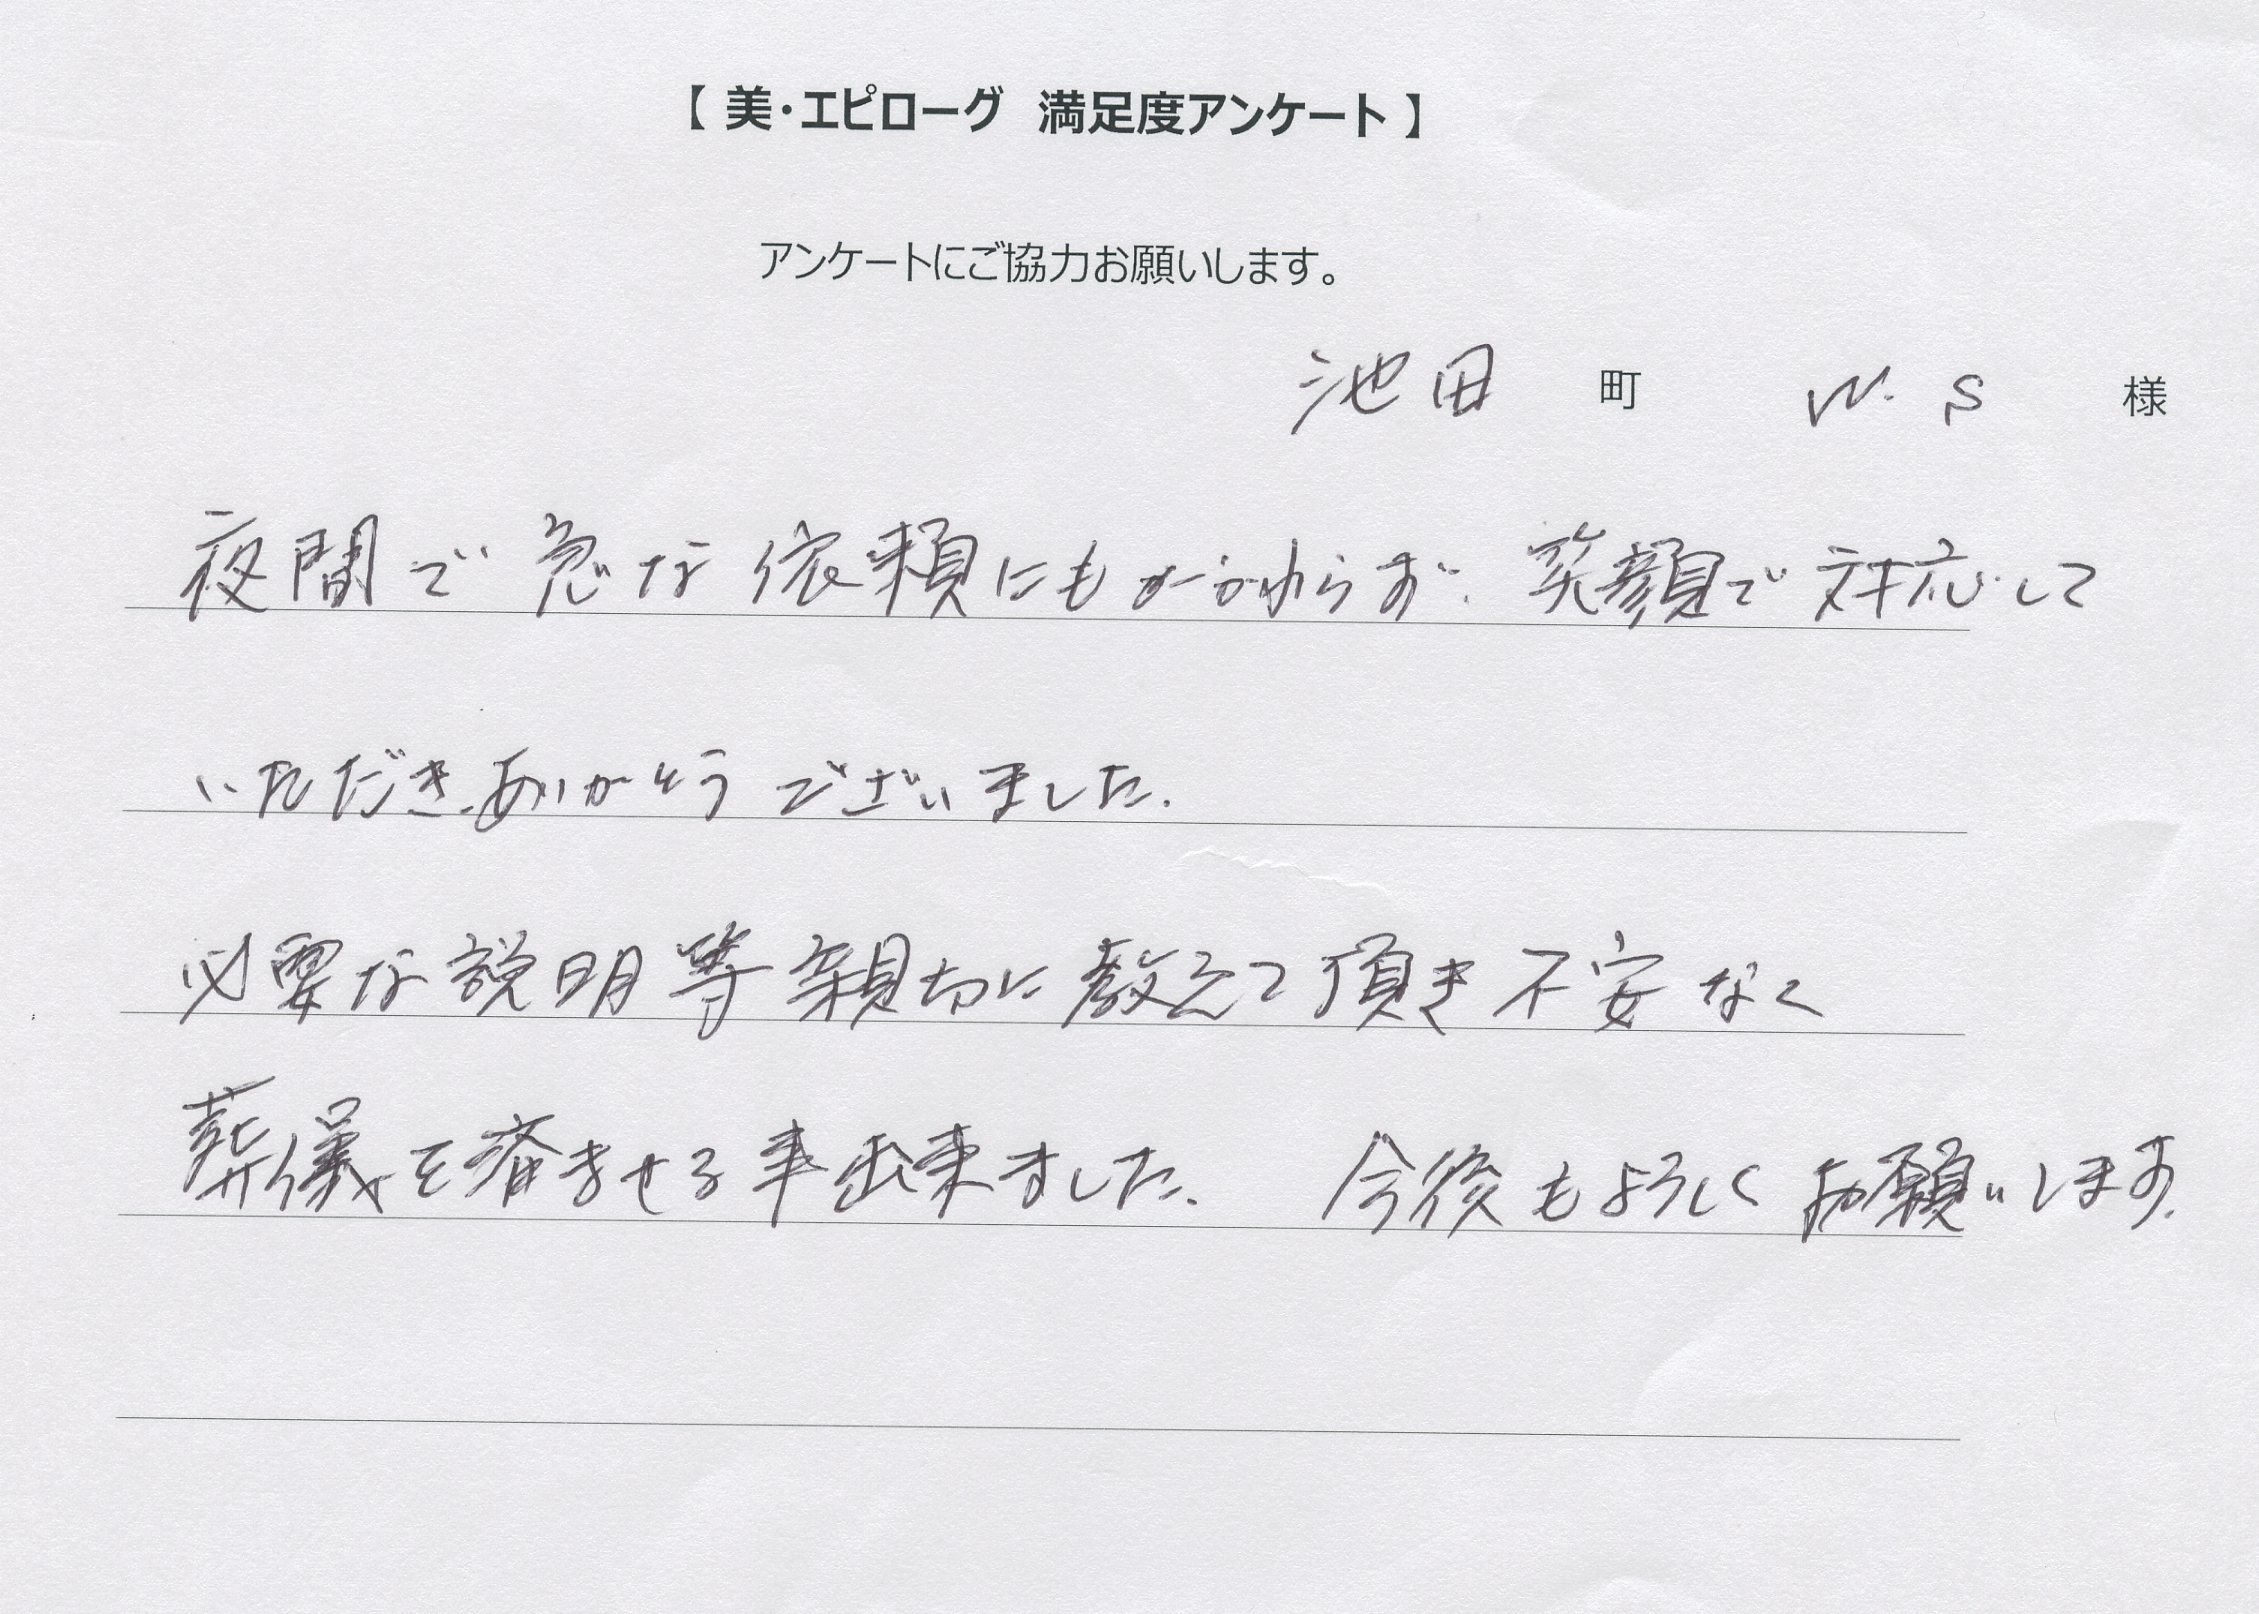 【 美・エピローグ 満足度アンケート 】
アンケートにご協力お願いします。
池田 町 W. S 様
夜間で急な依頼にもかかわらず、笑顔で対応して
いただき、ありがとうございました。
必要な説明等親切に教えて頂き不安なく
葬儀を済ませる事出来ました。 今後もよろしくお願いします。